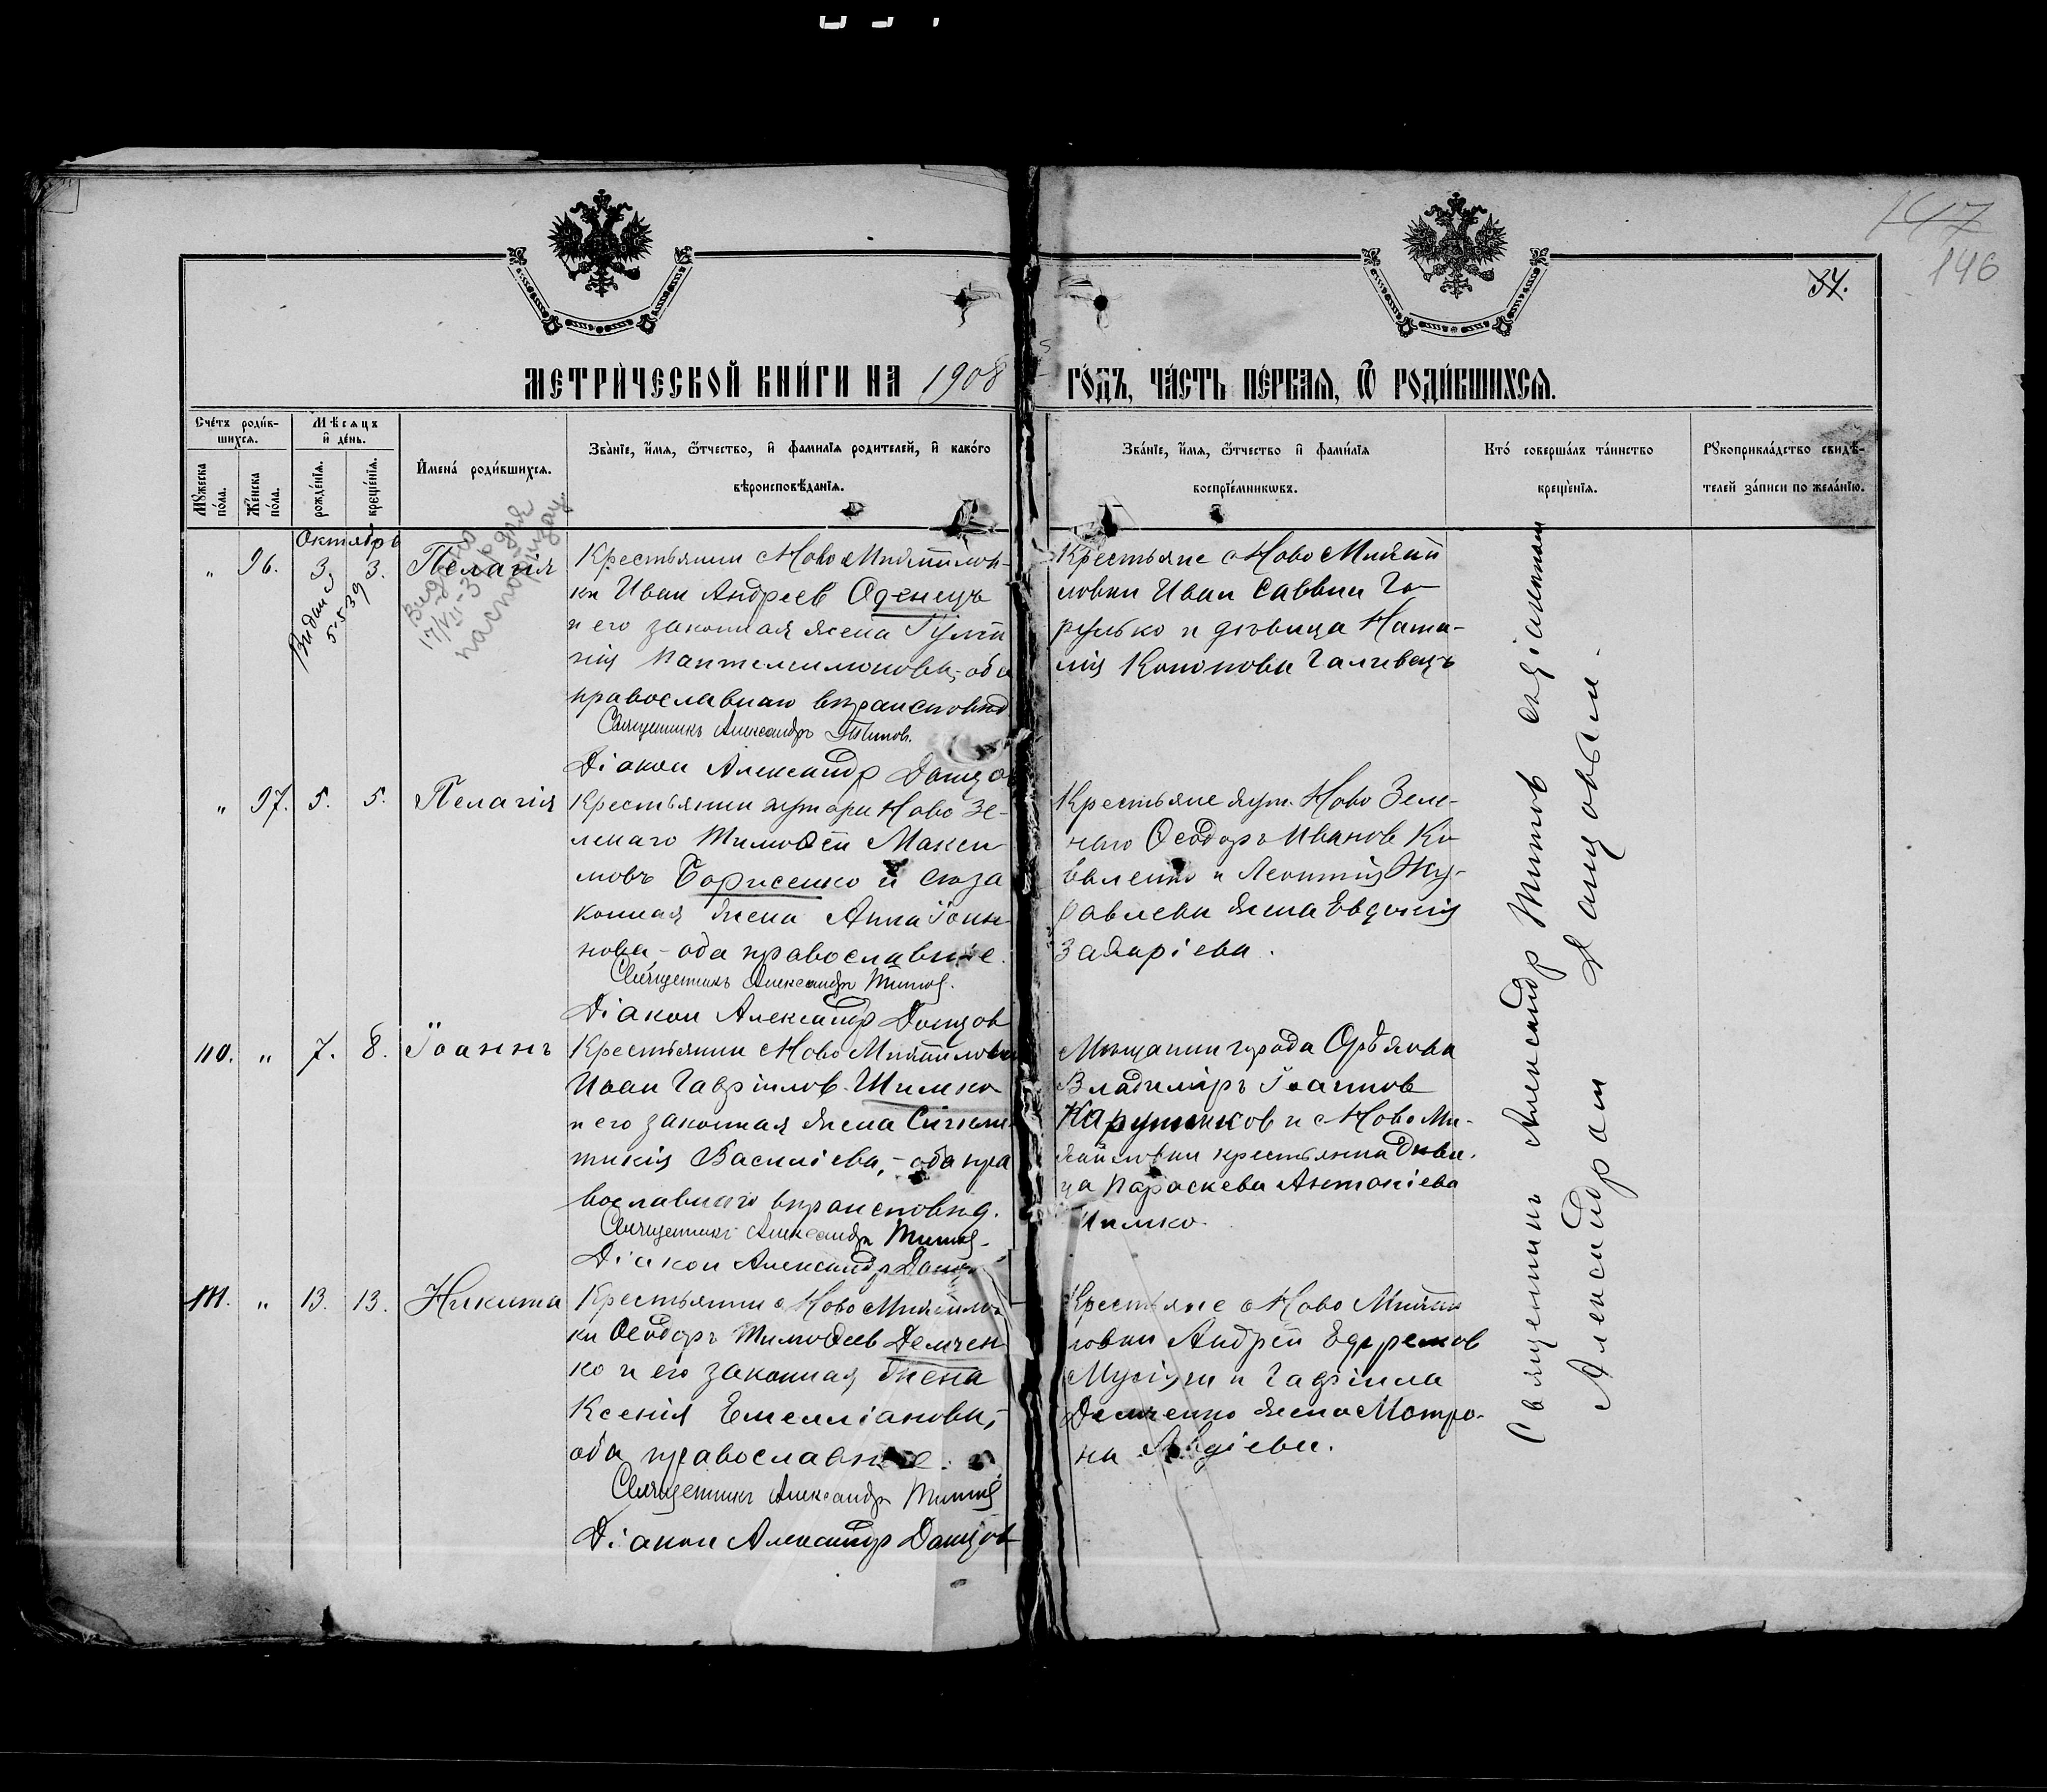 147
146
34.
МЕТРИ́ЧЕСКОЙ КНИ́ГИ НА 1908 ГО́ДЪ, ЧА́СТЬ ПЕ́РВАЯ, Ѿ РОДИ́ВШИХСЯ.
Сче́тъ роди́в-
шихся.
Мѣ́сяцъ
и҆ де́нь.
Мꙋ́жеска
по́ла.
Же́нска
по́ла.
рожде́нїя.
креще́нїя.
И҆мена̀ роди́вшихся.
Зва́нїе, и҆́мя, ѻ҆́тчество, и҆ фами́лїя роди́телей, и҆ како́го
вѣроисповѣ́данїя.
Зва́нїе, и҆́мя, ѻ҆́тчество и҆ фами́лїя
воспрїе́мникѡвъ.
Кто̀ соверша́лъ та́инство
креще́нїя.
Рꙋкоприкла́дство свидѣ́-
телей за́писи по жела́нїю.
Октябрь
" 96. 3. 3. Пелагія
Выдано
17/VI-3 для
паспортизац
5-5-39
Крестьянин с Ново Михайлов-
ки Иван Андреев Оденецъ
и его законная жена
Пантелеимонова, оба
православнаго вѣроисповѣд
Священникъ Александръ Титов.
Діакон Александр Донцов
Крестьяне с Ново Михай
ловки Иван Саввин Го-
рулько и дѣвица Ната-
лія Кононова Галивецъ
" 97. 5. 5. Пелагія
Крестьянин хутора Ново Зе-
ленаго Тимоѳей Макси
мовъ Борисенко и его за
конная жена Анна Іоан-
нова, - оба православные.
Священникъ Александръ Титов.
Діакон Александр Донцов
Крестьяне хут. Ново Зеле-
наго Ѳеодоръ Иванов Ко
валенко и Леонтія Жу-
равлева жена Евдокія
Захаріева.
110. " 7. 8. Іоаннъ
Крестьянин с Ново Михайловки
Иван Гавріилов Шимко
и его законная жена Синкли-
тикія Василіева, - оба пра
вославнаго вѣроисповѣд.
Священникъ Александръ Титов.
Діакон Александр Донцов
Мѣщанин города
Владимиръ Іоаннов
и с Ново Ми-
хайловки крестьянка дѣви-
ца Параскева Антоніева
Шимко.
111. " 13. 13. Никита
Крестьянин с Ново Михайлов
ки Ѳеодоръ Тимоѳеев Демчен-
ко и его законная жена
Ксенія Емелліанова,
оба православные.
Священникъ Александръ Титов
Діакон Александр Донцов
Крестьяне с Ново Михай
ловки Андрей Ефремов
и Гавріила
Демченко жена Матро-
на Авдіева.
Священникъ Александр Титов с діаконом
Александром Донцовым.